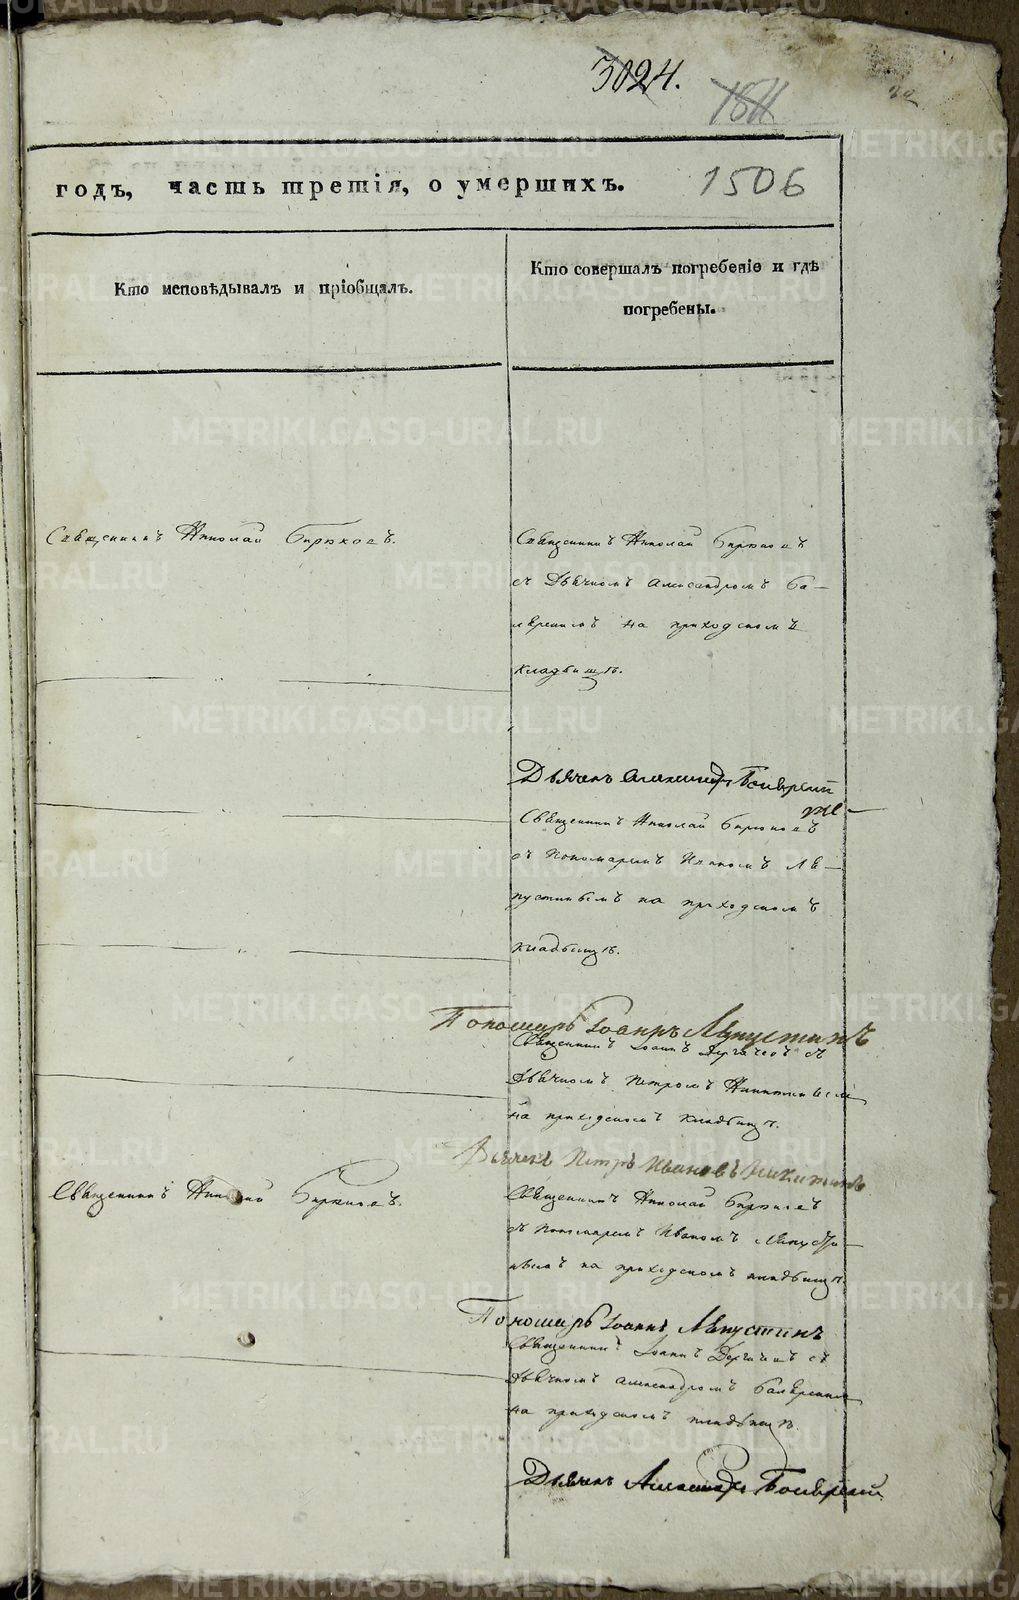 3024.
1811
1506
годъ, часть третія, о умершихъ.
Кто исповѣдывалъ и пріобщалъ.
Кто совершалъ погребеніе и гдѣ
погребены.
Священникъ Николай Бирюковъ.
Священникъ Николай Бирюковъ
съ Дьячкомъ Александромъ
на приходскомъ
кладбищѣ.
Дьячекъ Александръ
Священникъ Николай Бирюковъ
съ Пономаремъ Иваномъ Ле-
пустинымъ на приходскомъ
кладбищѣ.
Пономарь Іоаннъ Лепустинъ
Священникъ Іоаннъ Дергачевъ съ
Дьячкомъ Петромъ Никитинымъ
на приходскомъ кладбищѣ.
Дьячекъ Петръ Ивановъ Никитинъ
Священникъ Николай Бирюковъ.
Священникъ Николай Бирюковъ
съ Пономаремъ Иваномъ Лепусти-
нымъ на приходскомъ кладбищѣ.
Пономарь Іоаннъ Лепустинъ
Священникъ Іоаннъ Дергачевъ съ
Дьячкомъ Александромъ
на приходскомъ кладбищѣ
Дьячекъ Александръ
METRIKI.GASO-URAL.RU